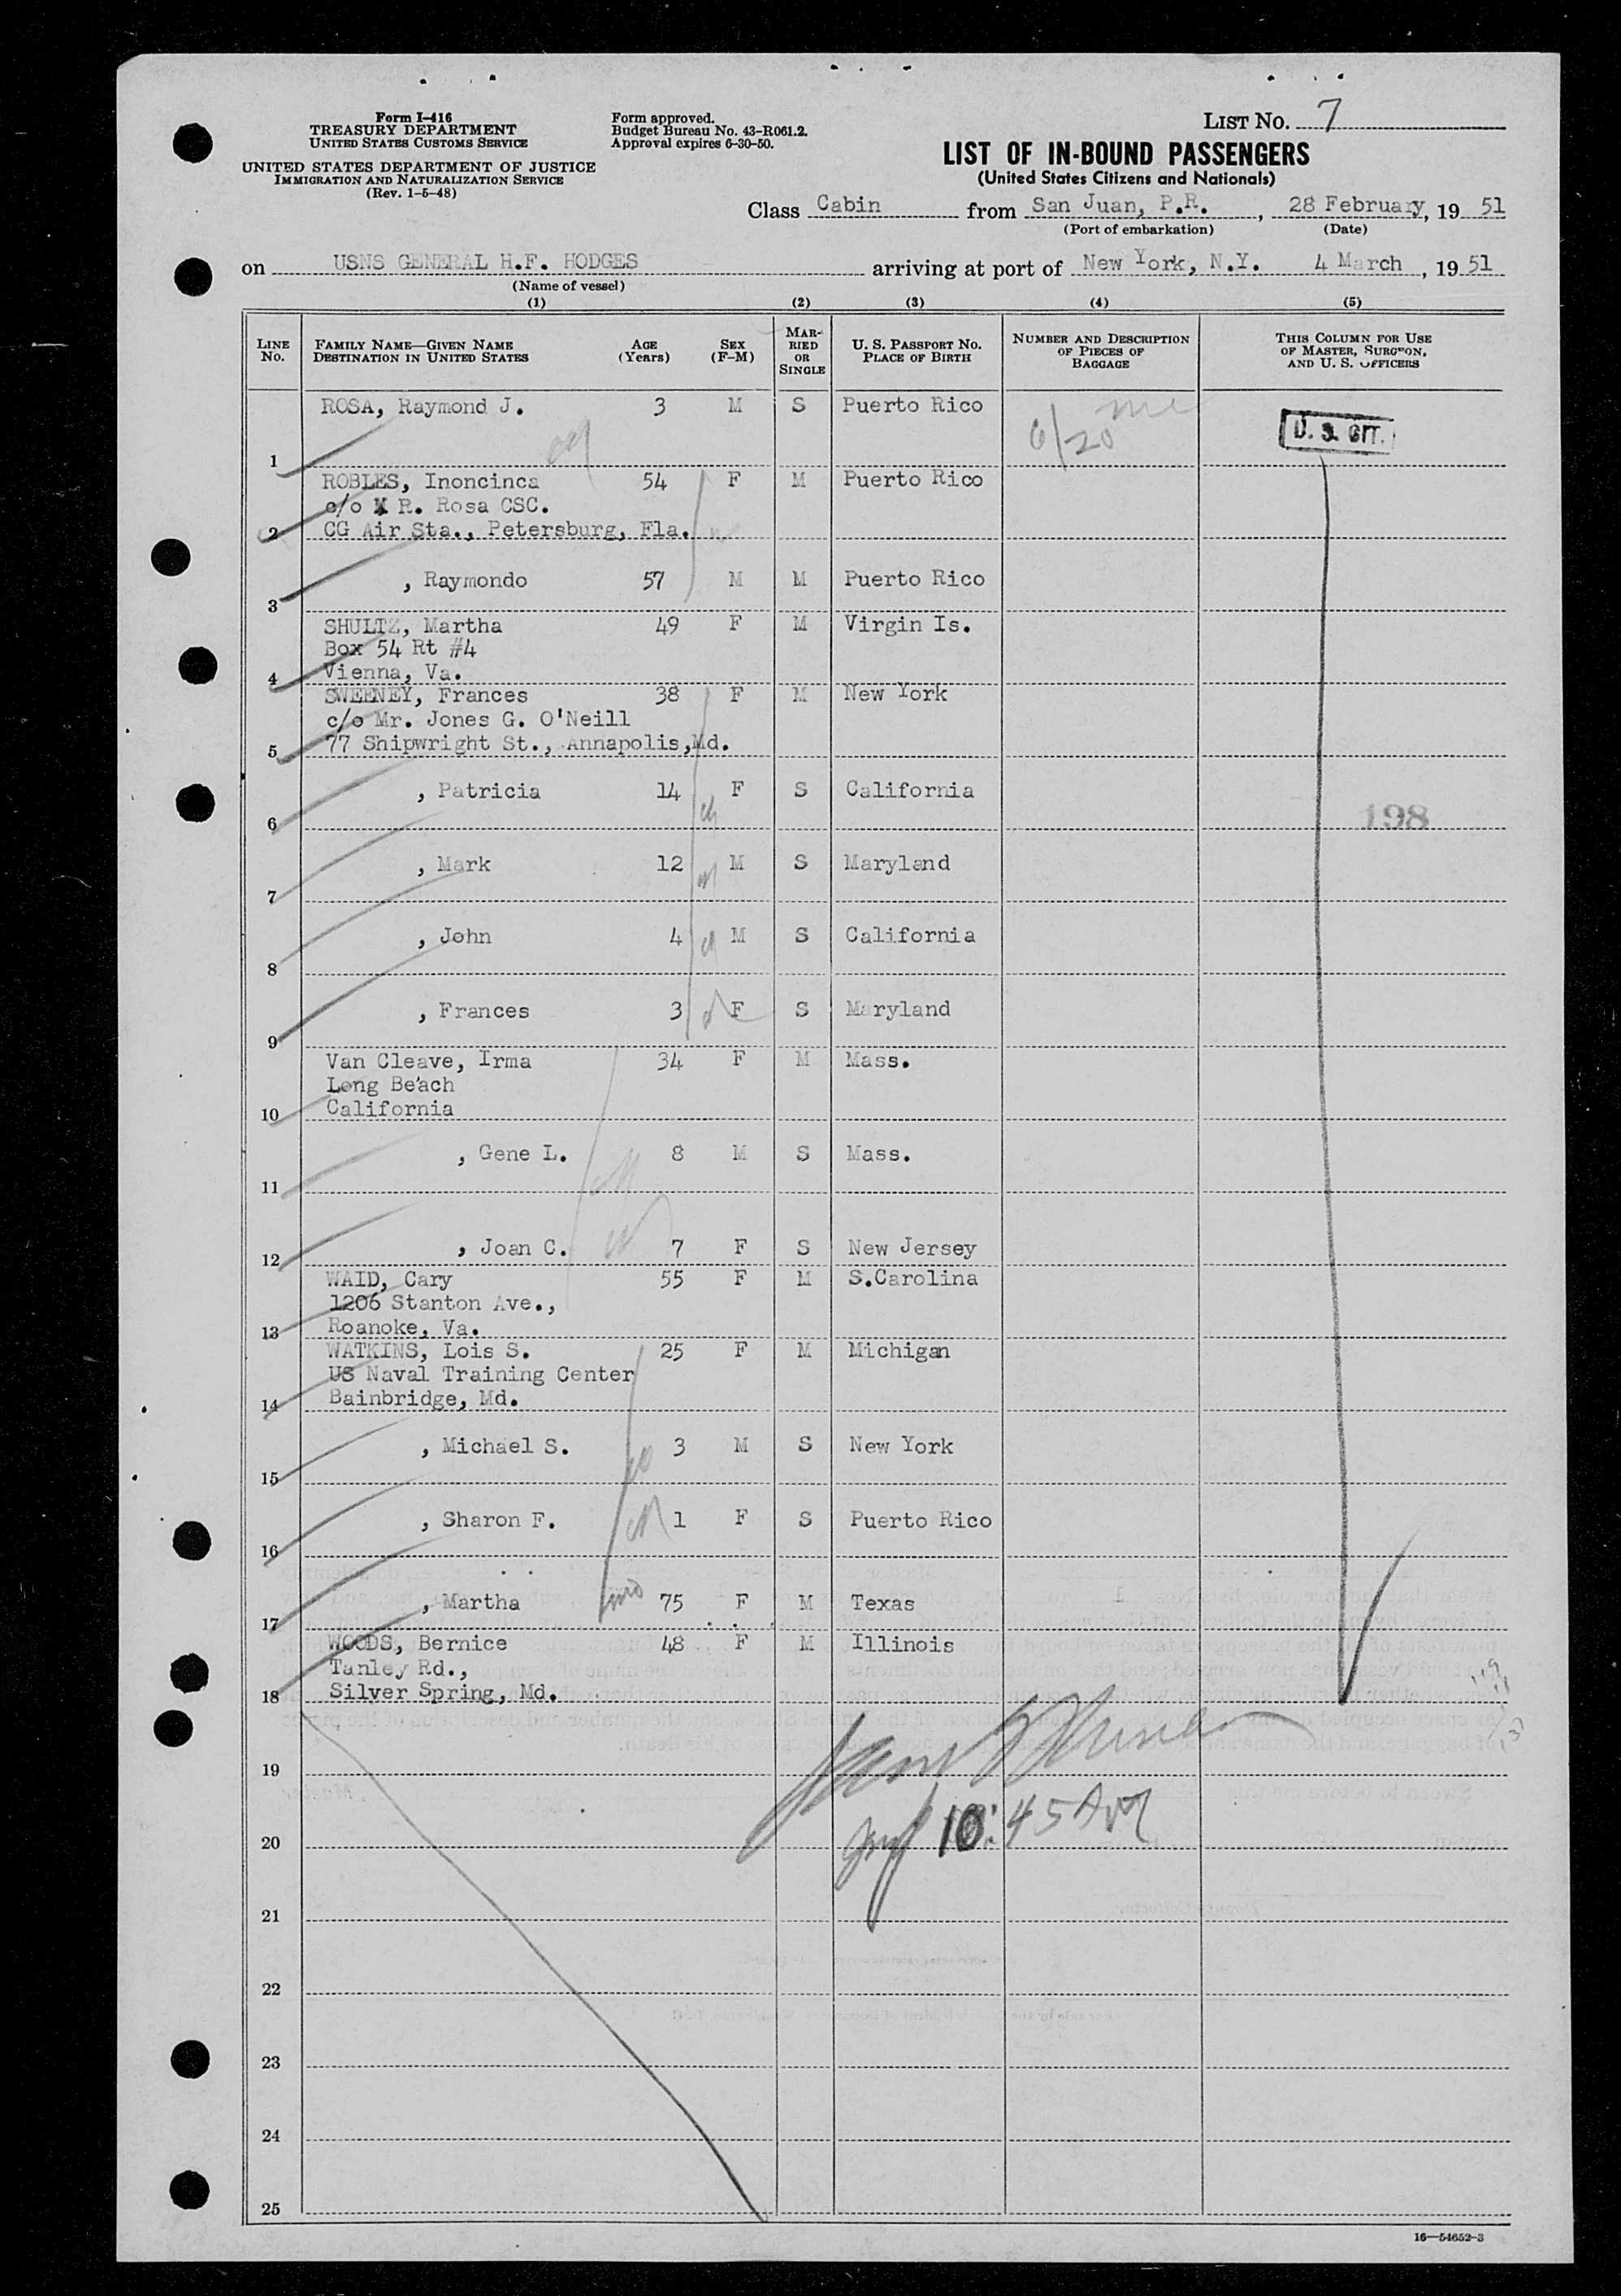 Form I-416
TREASURY DEPARTMENT
UNITED STATES CUSTOMS SERVICE
UNITED STATES DEPARTMENT OF JUSTICE
IMMIGRATION AND NATURALIZATION SERVICE
(Rev. 1-5-48)
Form approved.
Budget Bureau No. 43-R061.2.
Approval expires 6-30-50.
LIST NO. 7
LIST OF IN-BOUND PASSENGERS
(United States Citizens and Nationals)
Class Cabin from San Juan, P.R., 28 February, 19 51
(Port of embarkation) (Date)
on USNS GENERAL H.F. HODGES arriving at port of New York, N.Y. 4 March, 19 51
(Name of vessel)
(1) (2) (3) (4) (5)
LINE NO. FAMILY NAME—GIVEN NAME DESTINATION IN UNITED STATES AGE (Years) SEX (F-M) MARRIED OR SINGLE U. S. PASSPORT NO. PLACE OF BIRTH NUMBER AND DESCRIPTION OF PIECES OF BAGGAGE THIS COLUMN FOR USE OF MASTER, SURGEON, AND U. S. OFFICERS
ROSA, Raymond J. 3 M S Puerto Rico 6/20 U. S. CIT.
1
ROBLES, Inoncinca 54 F M Puerto Rico
c/o R. Rosa CSC.
2 CG Air Sta., Petersburg, Fla.
, Raymondo 57 M M Puerto Rico
3
SHULTZ, Martha 49 F M Virgin Is.
Box 54 Rt #4
4 Vienna, Va.
SWEENEY, Frances 38 F M New York
c/o Mr. Jones G. O'Neill
5 77 Shipwright St., Annapolis, Md.
, Patricia 14 F S California
198
6
, Mark 12 M S Maryland
7
, John 4 M S California
8
, Frances 3 F S Maryland
9
Van Cleave, Irma 34 F M Mass.
Long Beach
10 California
, Gene L. 8 M S Mass.
11
, Joan C. 7 F S New Jersey
12
WAID, Cary 55 F M S.Carolina
1206 Stanton Ave.,
13 Roanoke, Va.
WATKINS, Lois S. 25 F M Michigan
US Naval Training Center
14 Bainbridge, Md.
, Michael S. 3 M S New York
15
, Sharon F. 1 F S Puerto Rico
16
, Martha 75 F M Texas
17
WOODS, Bernice 48 F M Illinois
Tanley Rd.,
18 Silver Spring, Md.
19
10:45 AM
20
21
22
23
24
25
16—54652-3